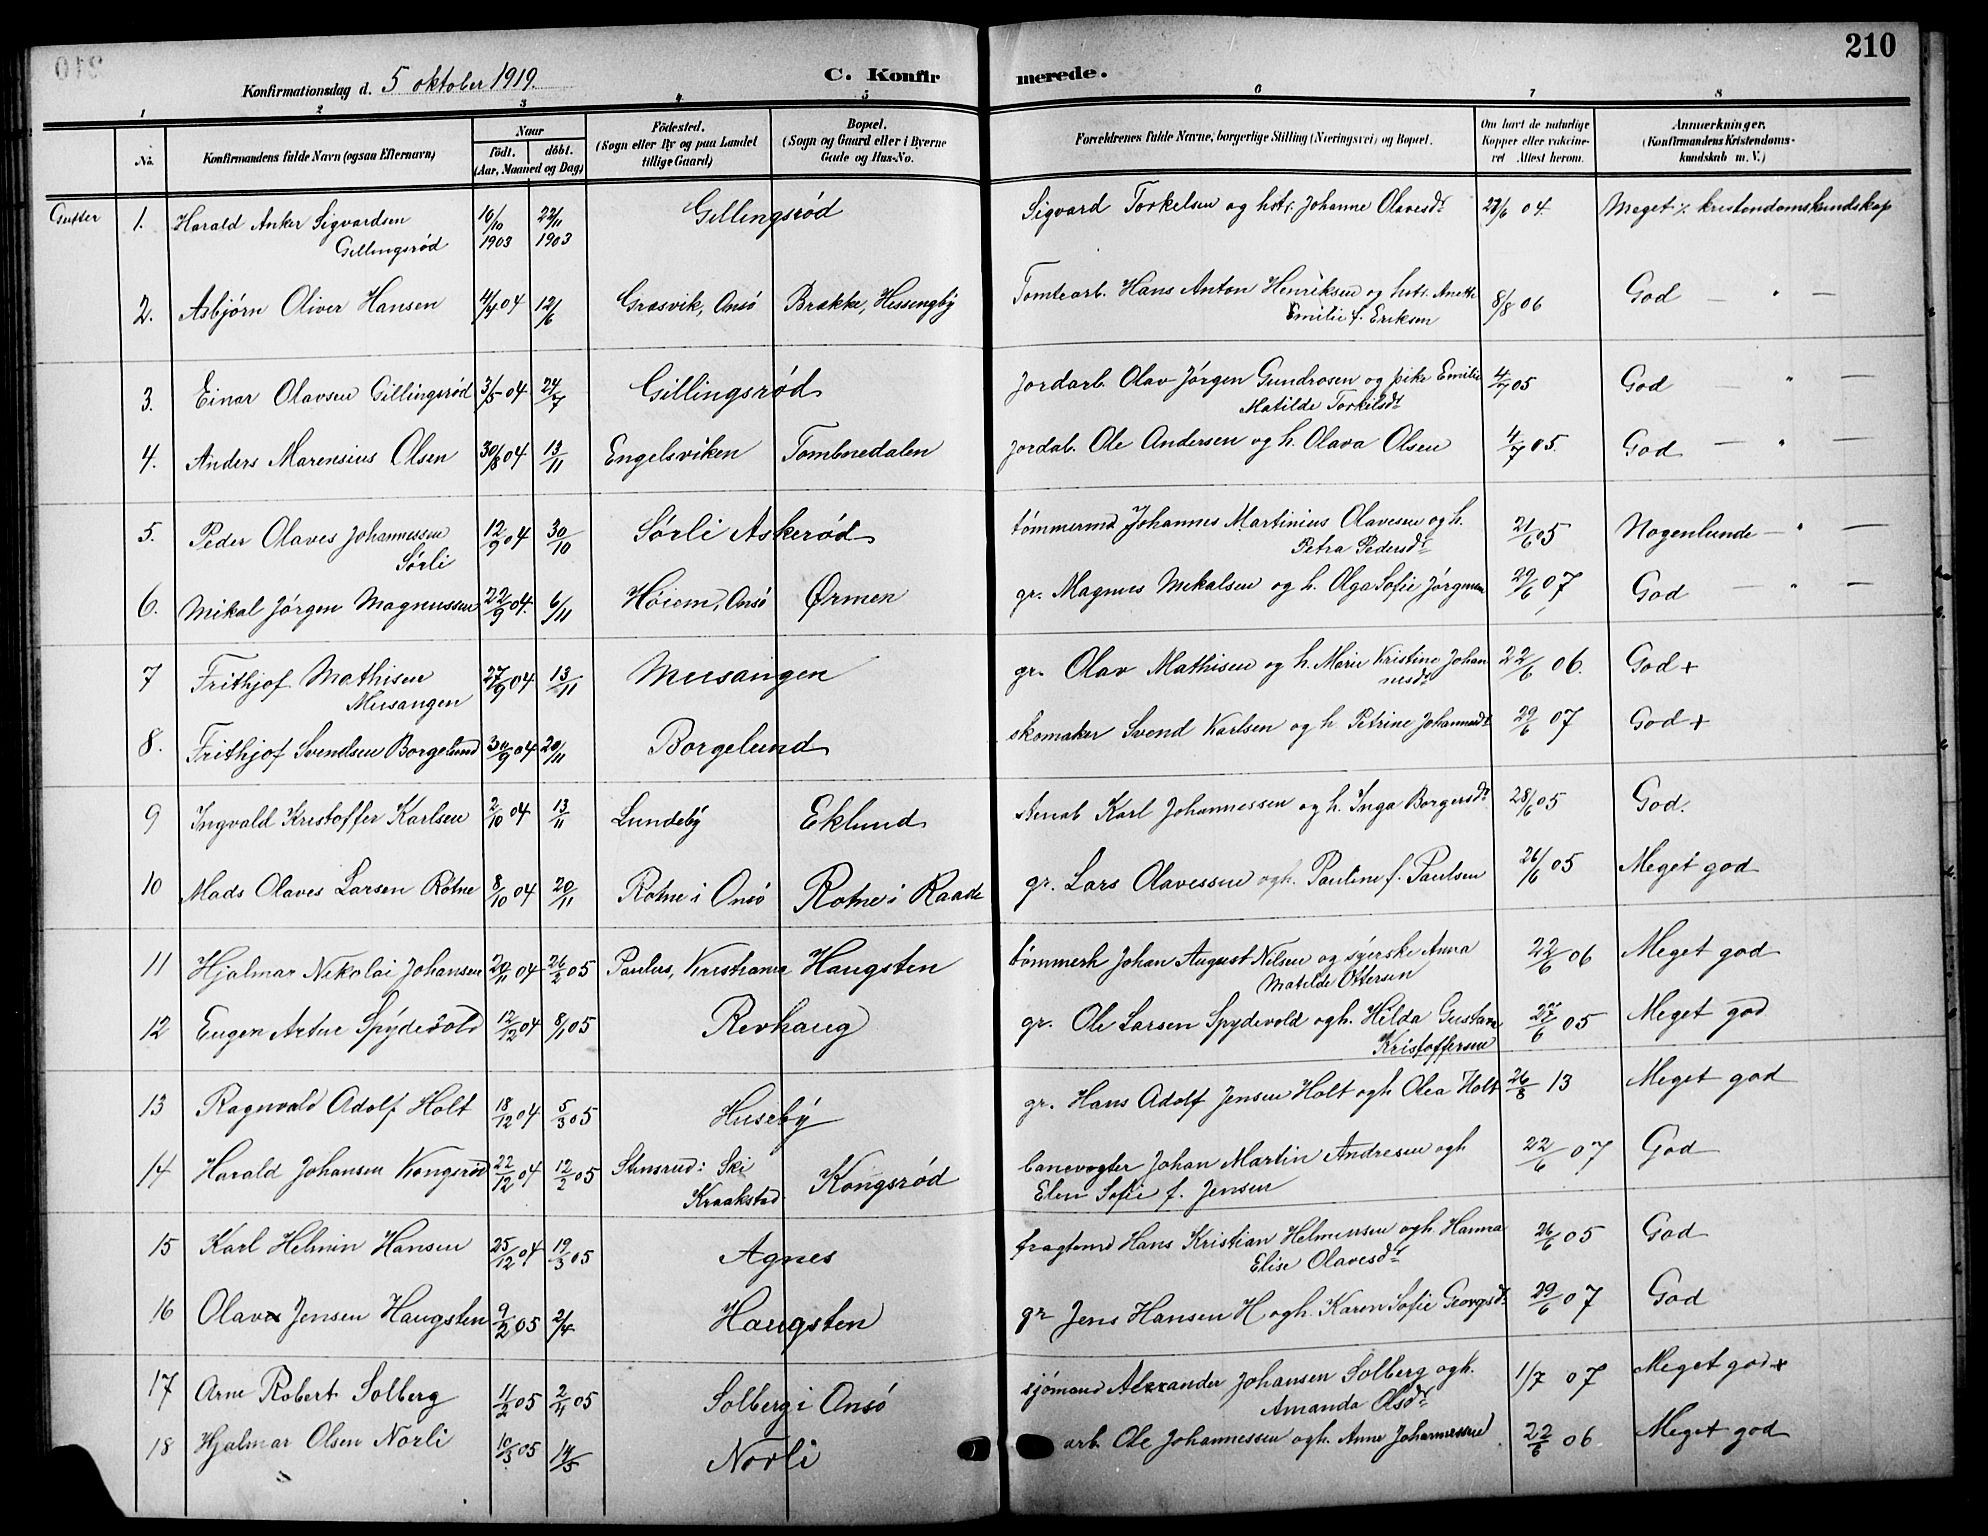 210
Konfirmationsdag d. 5 oktober 1919.
C. Konfirmerede.
1 2 3 4 5 6 7 8
No.
Konfirmandens fulde Navn (ogsaa Efternavn)
Naar
födt. döbt.
(Aar, Maaned og Dag)
Födested.
(Sogn eller By og paa Landet
tillige Gaard)
Bopæl.
(Sogn og Gaard eller i Byerne
Gade og Hus-No.
Forældrenes fulde Navne, borgerlige Stilling (Næringsvei) og Bopæl.
Om havt de naturlige
Kopper eller vaksine-
ret Attest herom.
Anmærkninger.
(Konfirmandens Kristendoms-
kundskab m. V.)
Gutter 1. Harald Anker Sigvardsen 10/10 22/11 Gillingsrød Sigvard Torkelsen og hstr. Johanne Olavesdt 28/6 04. Meget % kristendomskundskap
Gillingsrød 1903 1903
2. Asbjørn Oliver Hansen 4/4 04 12/6 Græsvik, Onsö Brække, Hessengby Tomtearb. Hans Anton Henriksen og hstr. Anette 8/8 06 God — " —
Emilie f. Eriksen
3. Einar Olavsen Gillingsrød 3/5 04 24/7 Gillingsrød Jordarb. Olav Jørgen Gundrosen og pike Emilie 4/7 05 God " —
Matilde Torkilsdt
4. Anders Marensius Olsen 30/8 04 13/11 Engelsviken Tombnedalen Jordab. Ole Andersen og h. Olava Olsen 4/7 05. God — " —
5. Peder Olaves Johannessen 12/9 04 30/10 Sørli Askerød tömmermd Johannes Martinius Olavesen og h. 21/6 05 Nogenlunde — " —
Sørli Petra Pedersdt
6. Mikal Jørgen Magnussen 22/9 04. 6/11 Høiem, Onsö Ørmen gr. Magnus Mikalsen og h. Olga Sofie Jørgensen 29/6 07 God — " —
7 Frithjof Mathisen 27/9 04 13/11 Musangen gr. Olav Mathisen og h. Marie Kristine Johan 22/6 06. God +
Musangen nesdt
8. Frithjof Svendsen Borgelund 30/9 04 20/11 Borgelund skomaker Svend Karlsen og h Petrine Johannesdt 29/6 07 God +
9 Ingvald Kristoffer Karlsen 2/10 04 13/11 Lundeby Eklund stenab Karl Johannessen og h. Inga Borgersdt 28/6 05 God.
10 Mads Olaves Larsen Rotne 8/10 04 20/11 Rotne i Onsö Rotne i Raade gr. Lars Olavessen og h. Pauline f. Paulsen 26/6 05 Meget god
11 Hjalmar Nikolai Johansen 20/11 04 26/2 05 Paulus, Kristiania Haugsten tömmerh Johan August Nilsen og syerske Anna 22/6 06 Meget god
Matilde Ottersen
12 Eugen Artur Spydevold 12/12 04 8/1 05 Revhaug gr. Ole Larsen Spydevold og h. Hilda Gustava 27/6 05 Meget god
Kristoffersen
13 Ragnvald Adolf Holt 18/12 04 5/3 05 Huseby gr. Hans Adolf Jensen Holt og h Olea Holt 26/8 13 Meget god
14 Harald Johansen Kongsrød 22/12 04 12/2 05 Stensrud: Ski Kongsrød banevogter Johan Martin Andresen og h 22/6 07 God
Kraakstad Elen Sofie f. Jensen
15 Karl Helmin Hansen 25/12 04 19/3 05 Agnes fragtemd Hans Kristian Helmersen og h. Hanna 26/6 05 God
Elise Olavesdt
16 Olav Jensen Haugsten 9/2 05 2/4 Haugsten gr Jens Hansen H og h. Karen Sofie Georgsdt 29/6 07 God
17 Arne Robert Solberg 11/2 05 2/11 05 Solberg i Onsö sjömand Alexander Johansen Solberg og h. 1/7 07 Meget god +
Amanda Olsdt
18 Hjalmar Olsen Norli 10/3 05 14/5 Norli arb. Ole Johannessen og h. Anne Johannessen 22/6 06 Meget god